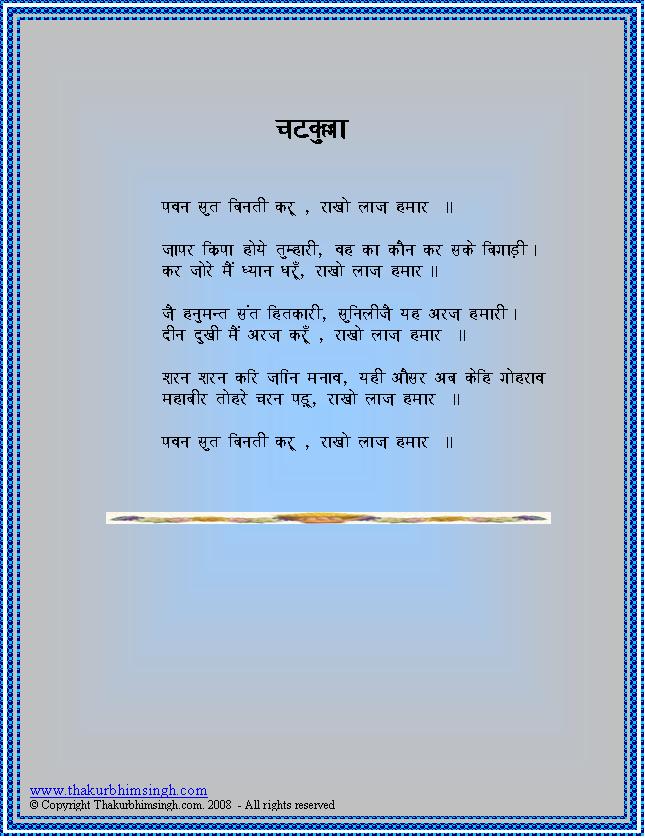 चटकुल्ला
पवन सुत बिनती करू , राखो लाज़ हमार ॥
ज़ापर क्रिपा होये तुम्हारी, वह का कौन कर सके बिगाड़ी ।
कर ज़ोरे मैं ध्यान धरूँ, राखो लाज़ हमार ॥
ज़ै हनुमन्त संत हितकारी, सुनिलीज़ै यह अरज़ हमारी ।
दीन दुखी मैं अरज़ करूँ , राखो लाज़ हमार ॥
शरन शरन करि ज़ानि मनाव, यही औसर अब केहि गोहराव
महाबीर तोहरे चरन पड़ू, राखो लाज़ हमार ॥
पवन सुत बिनती करू , राखो लाज़ हमार ॥
www.thakurbhimsingh.com
© Copyright Thakurbhimsingh.com. 2008 - All rights reserved